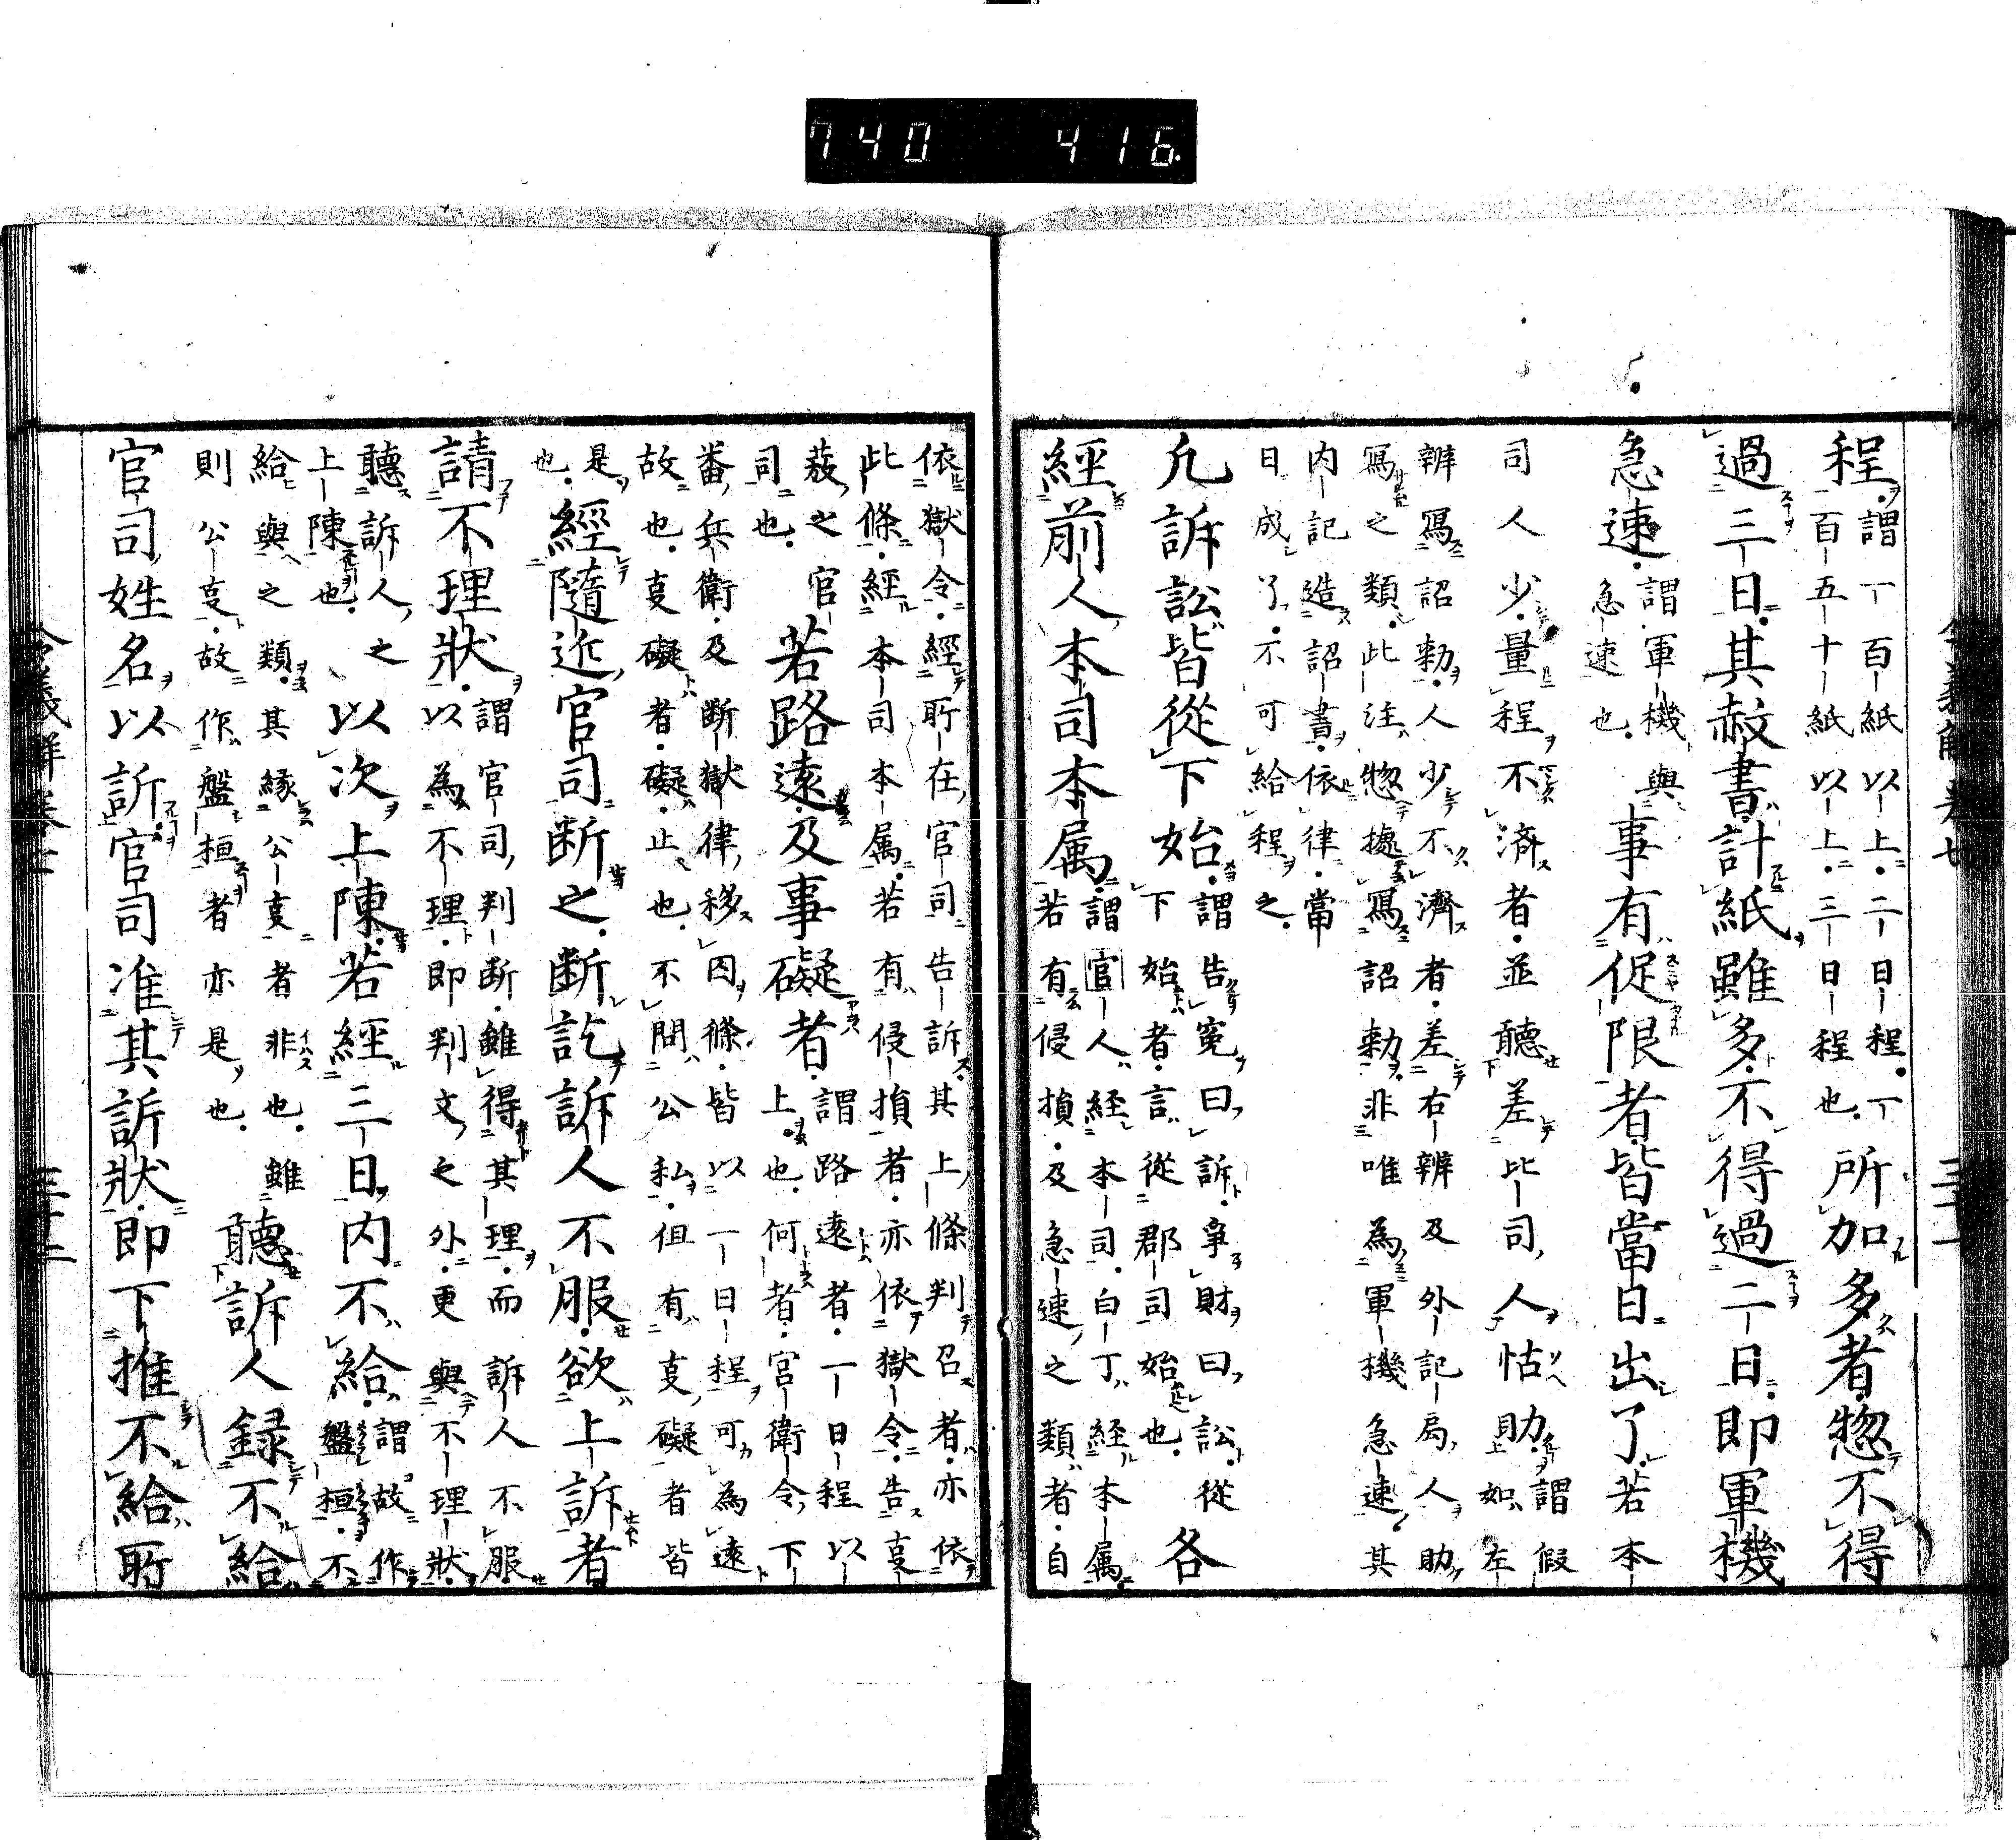 740 416
程謂一百紙以上二日程一百五十紙以上三日程也所加多者惣不得
過三日其赦書計紙雖多不得過二日即軍機
急速謂軍機與急速也事有促限者皆當日出了若本
司人少量程不済者並聽差比司人怗助謂假如左
辨寫詔勅人少不濟者差右辨及外記局人助
寫之類此注惣據寫詔勅非唯為軍機急速其
内記造詔書依律當
日成了不可給程之
凢訴訟皆從下始謂告寃曰訴爭財曰訟從下始者言從郡司始也各
經前人本司本属謂官人經本司白丁經本属若有侵損及急速之類者自
依獄令經所在官司告訴其上條判召者亦依
此條經本司本属若有侵損者亦依獄令告叓
蓛之官司也若路遠及事礙者謂路遠者一日程以上也何者宮衛令下
番兵衛及断獄律移囚條皆以一日程可為遠
故也叓礙者礙止也不問公私但有叓礙者皆
是也經隨近官司断之断訖訴人不服欲上訴者
請不理狀謂官司判断雖得其理而訴人不服以為不理即判文之外更與不理狀
聽訴人之上陳也以次上陳若經三日内不給謂故作盤桓不
給與之類其緣公叓者非也雖則公叓故作盤桓者亦是也聽訴人録不給
官司姓名以訴官司准其訴狀即下推不給所